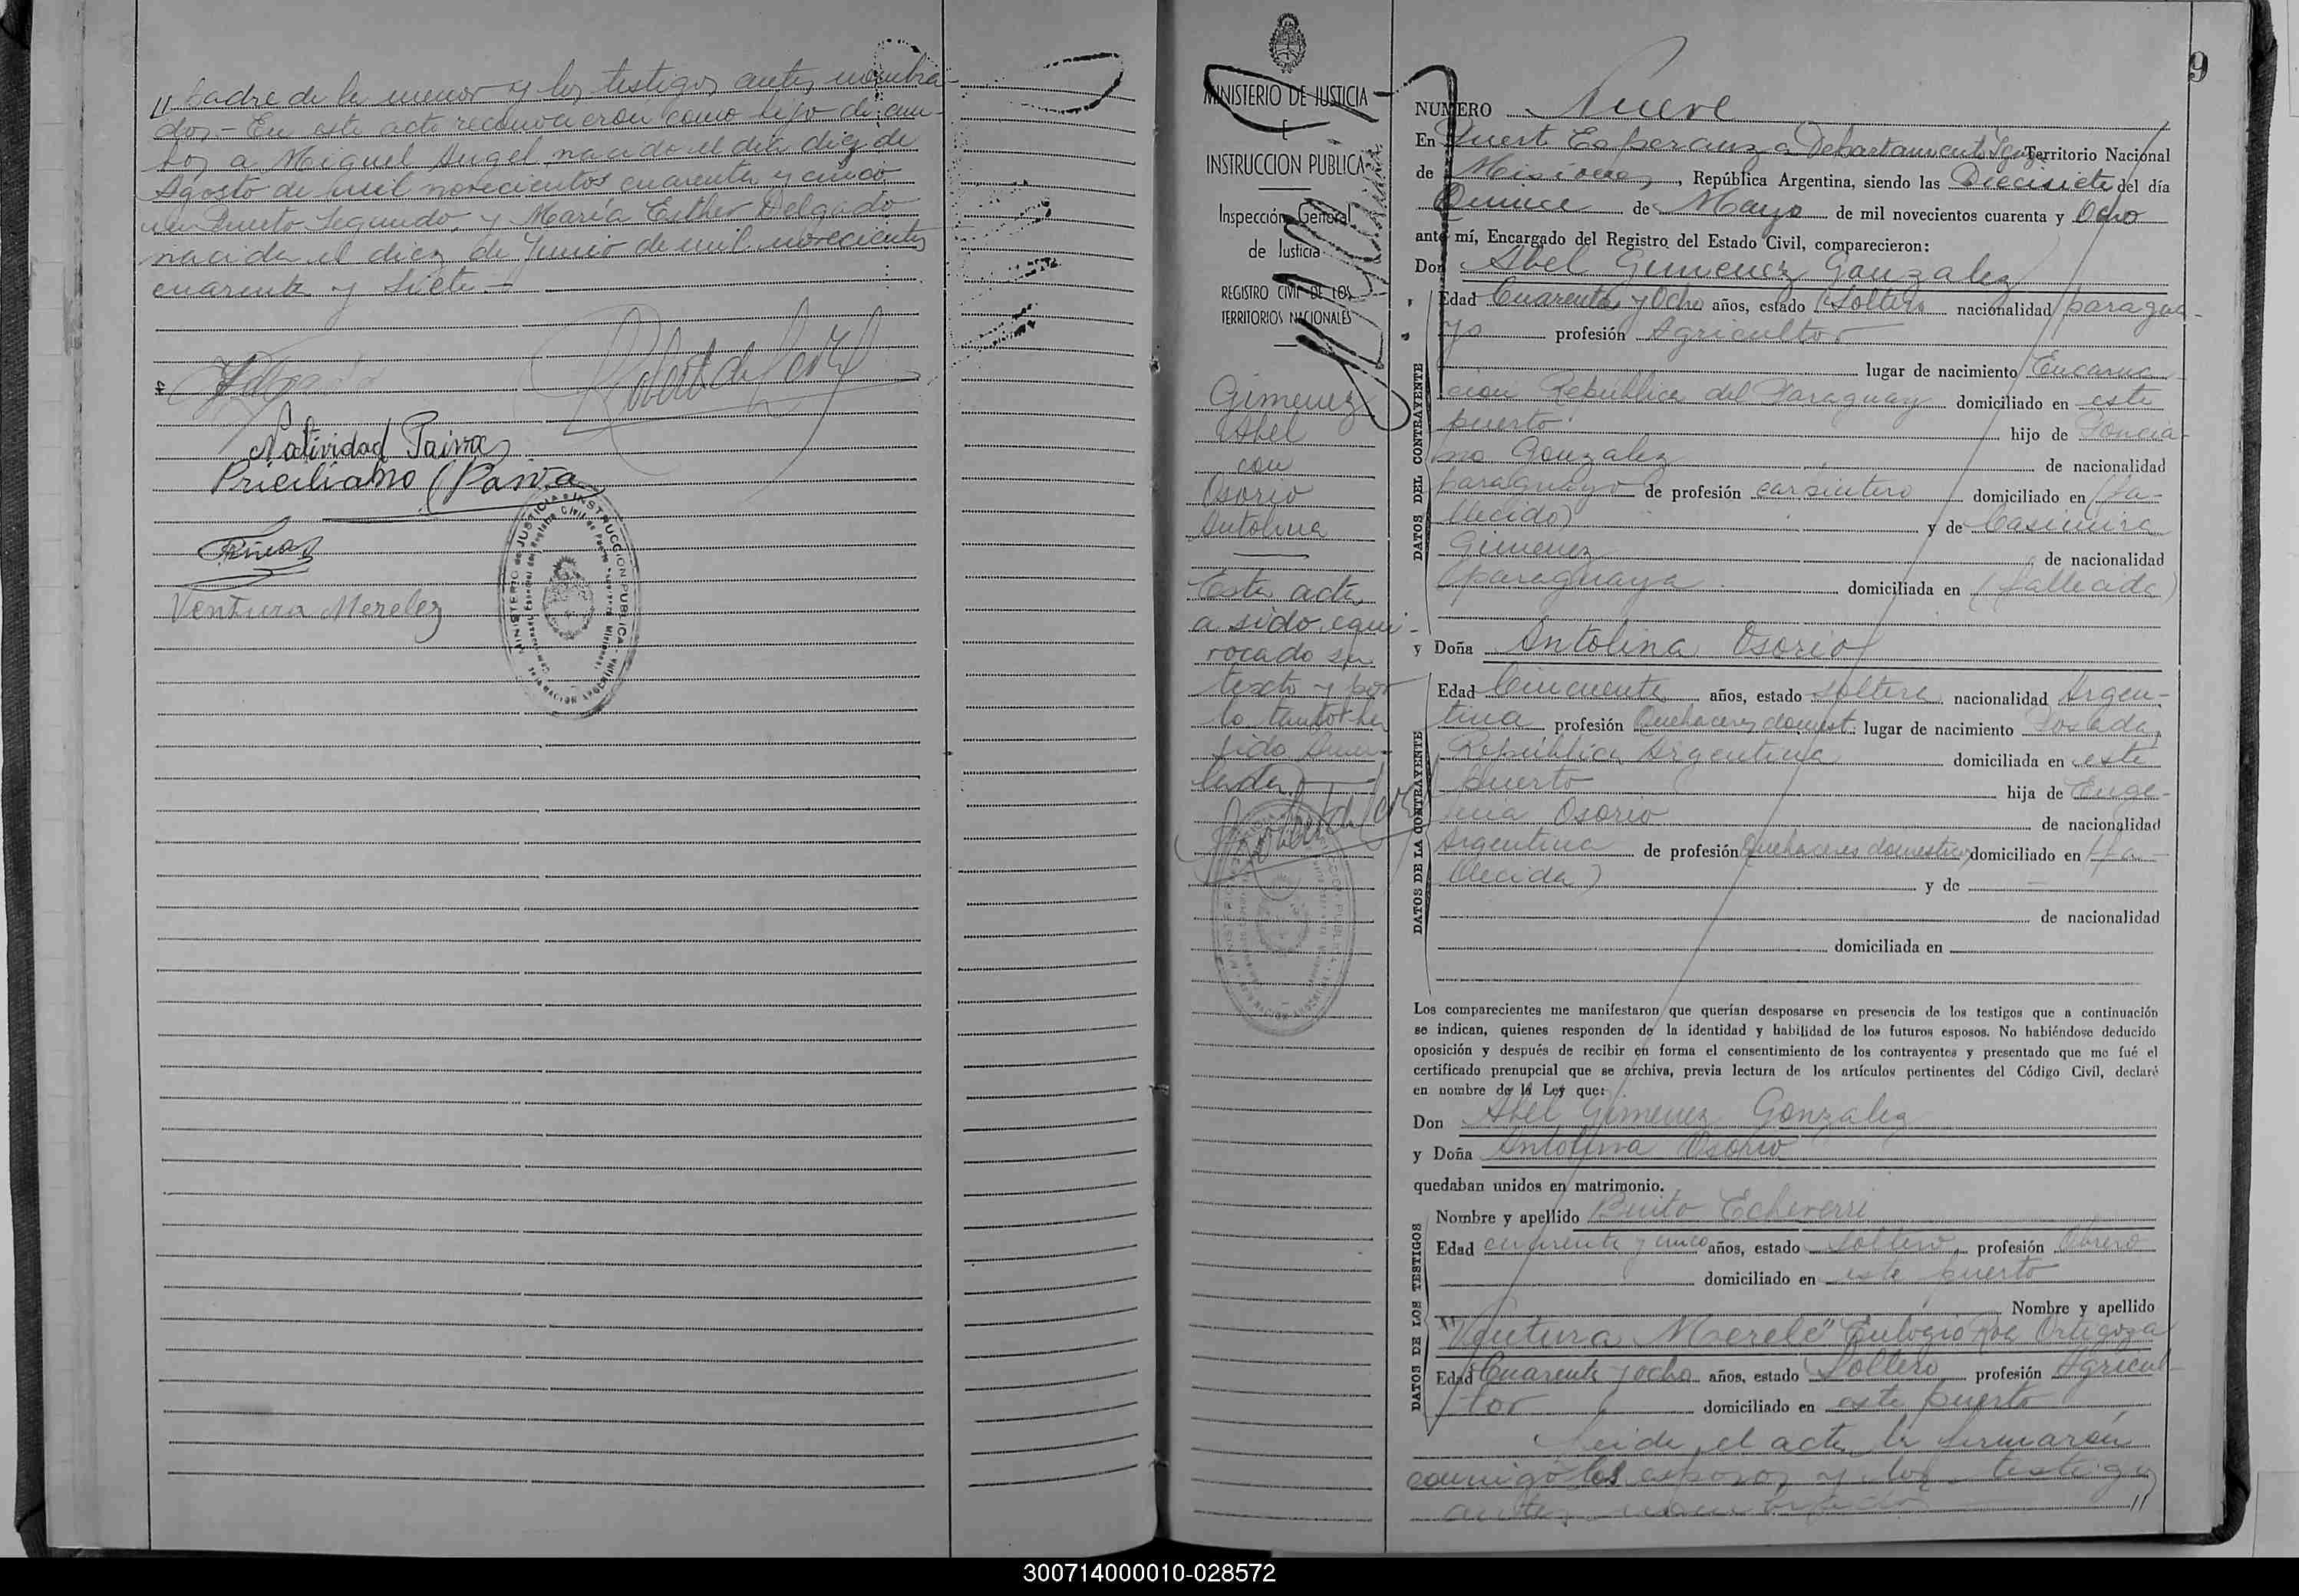 // padre de la menor y los testigos antes nombra-
dos - En este acto reconocieron como hijo de am-
bos a Miguel Angel nacido el día diez de
Agosto de mil novecientos cuarenta y cinco
en Puerto Segundo, y María Esther Delgado
nacida el diez de Junio de mil novecientos
cuarenta y siete -
Natividad Paiva
Priciliano Paiva
Ventura Merelez
MINISTERIO DE JUSTICIA
E
INSTRUCCION PUBLICA
Inspección General
de Justicia
REGISTRO CIVIL DE LOS
TERRITORIOS NACIONALES
Gimenez
Abel
con
Osorio
Antolina
Esta acta
a sido equi-
vocado su
texto y por
lo tanto ha
sido Anu-
lada
9
NUMERO Nueve
En Puerto Esperanza Departamento Territorio Nacional
de Misiones, República Argentina, siendo las Diecisiete del día
Quince de Mayo de mil novecientos cuarenta y Ocho
ante mí, Encargado del Registro del Estado Civil, comparecieron:
Don Abel Gimenez Gonzalez
DATOS DEL CONTRAYENTE
Edad Cuarenta y Ocho años, estado Soltero nacionalidad paragua-
yo profesión Agricultor
lugar de nacimiento Encarna-
cion República del Paraguay domiciliado en este
puerto hijo de Poncia-
no Gonzalez de nacionalidad
paraguayo de profesión carpintero domiciliado en (fa-
llecido) y de Casimira
Gimenez de nacionalidad
paraguaya domiciliada en (fallecida)
y Doña Antolina Osorio
DATOS DE LA CONTRAYENTE
Edad Cincuenta años, estado soltera nacionalidad Argen-
tina profesión Quehaceres domest. lugar de nacimiento Posadas,
República Argentina domiciliada en este
puerto hija de Euge-
nia Osorio de nacionalidad
Argentina de profesión Quehaceres domesticos domiciliado en (fa-
llecida) y de —
de nacionalidad
domiciliada en
Los comparecientes me manifestaron que querían desposarse en presencia de los testigos que a continuación
se indican, quienes responden de la identidad y habilidad de los futuros esposos. No habiéndose deducido
oposición y después de recibir en forma el consentimiento de los contrayentes y presentado que me fué el
certificado prenupcial que se archiva, previa lectura de los artículos pertinentes del Código Civil, declaré
en nombre de la Ley que:
Don Abel Gimenez Gonzalez
y Doña Antolina Osorio
quedaban unidos en matrimonio.
DATOS DE LOS TESTIGOS
Nombre y apellido Benito Echeverri
Edad cuarenta y cinco años, estado Soltero, profesión Obrero
domiciliado en este puerto
Nombre y apellido
"Ventura Merele" Eulogio Roa Ortigoza
Edad Cuarenta y ocho años, estado Soltero profesión Agricul-
tor domiciliado en este puerto
Leida el acta la firmarón
conmigo los esposos y los testigos
antes nombrados //
300714000010-028572